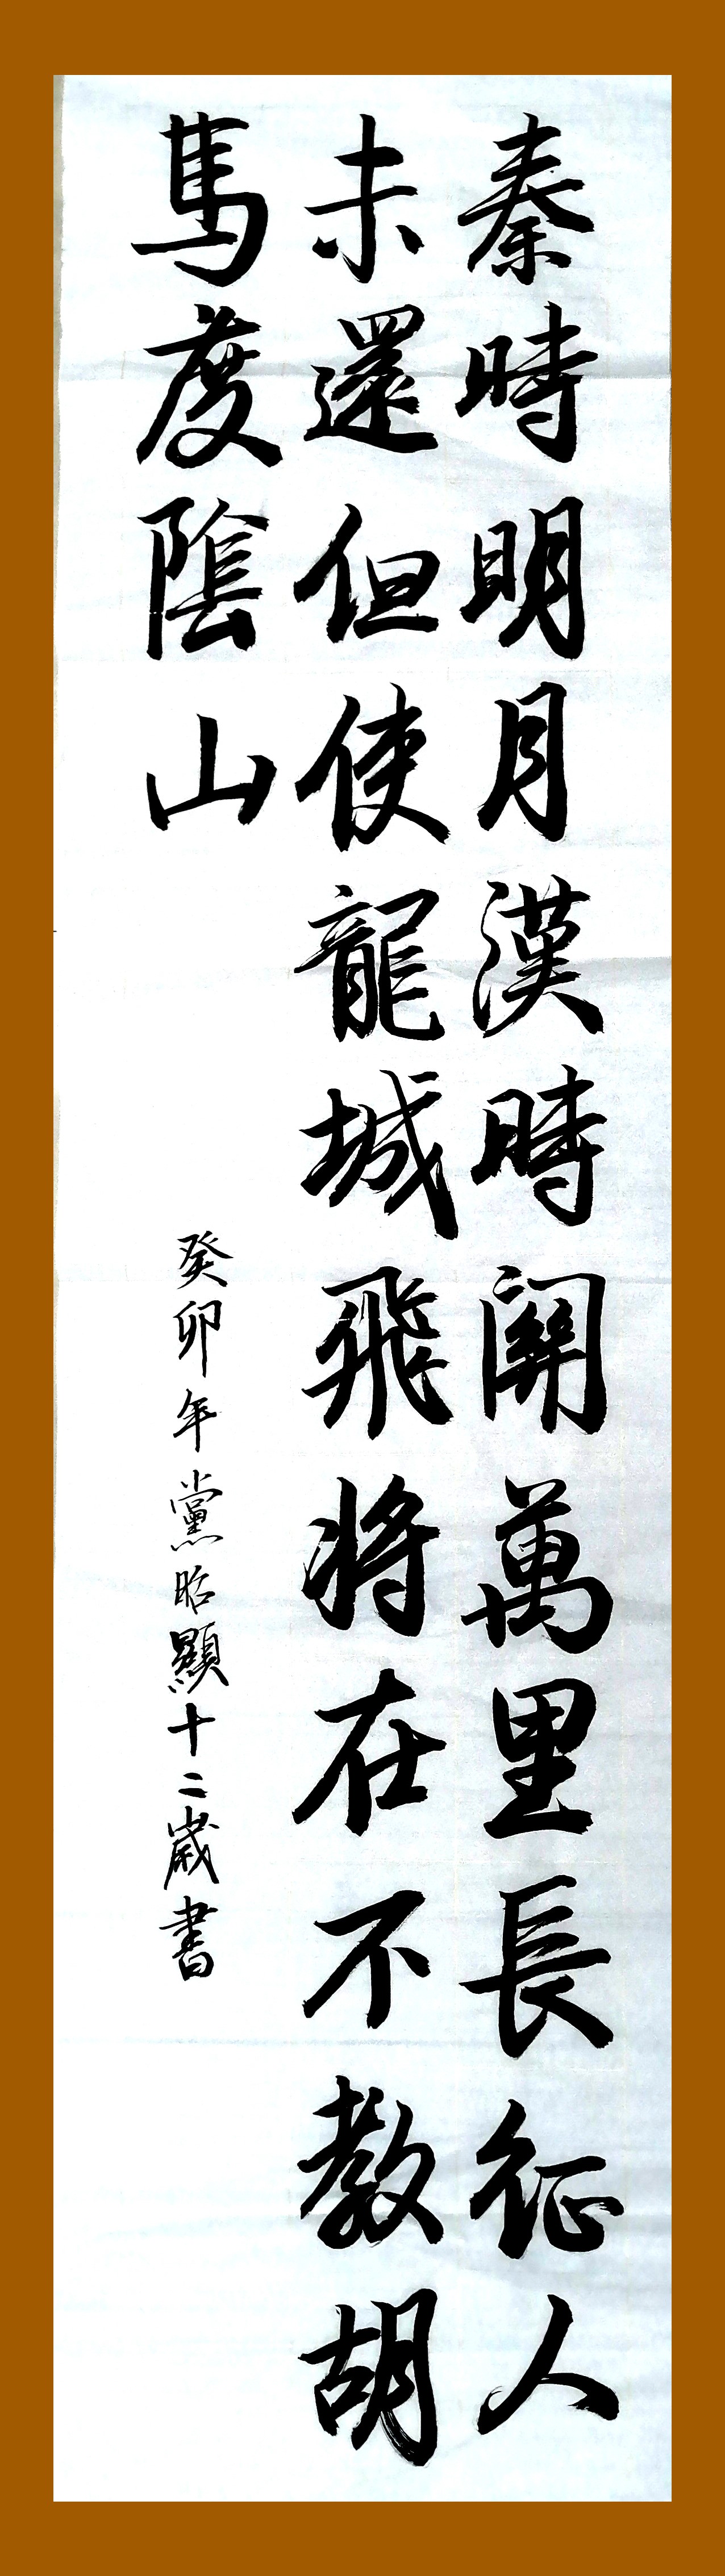 秦時明月漢時關萬里長征人
未還但使龍城飛將在不教胡
馬度陰山
癸卯年黨昭顯十二歲書